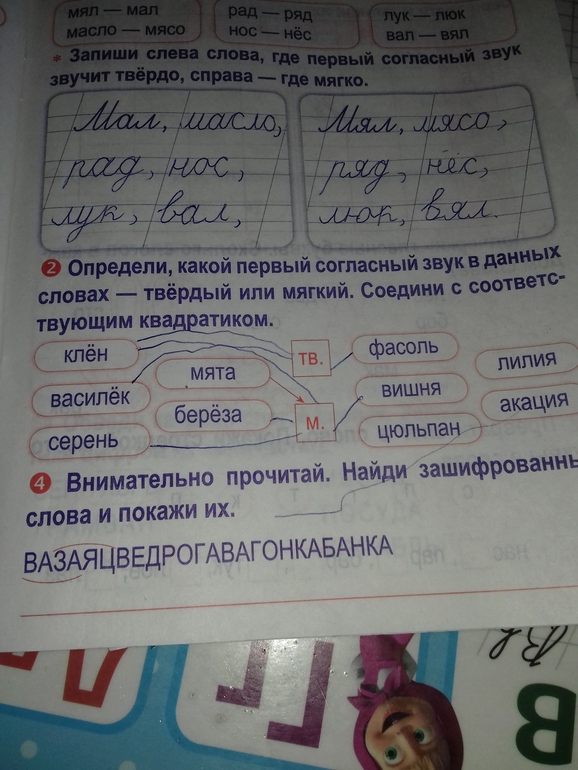 мял — мал
масло — мясо
рад — ряд
нос — нёс
лук — люк
вал — вял
* Запиши слева слова, где первый согласный звук
звучит твёрдо, справа — где мягко.
Мал, масло,
рад, нос,
лук, вал,
Мял, мясо,
ряд, нёс,
люк, вял.
2 Определи, какой первый согласный звук в данных
словах — твёрдый или мягкий. Соедини с соответс-
твующим квадратиком.
клён
василёк
серень
мята
берёза
тв.
м.
фасоль
вишня
цюльпан
лилия
акация
4 Внимательно прочитай. Найди зашифрованнь
слова и покажи их.
ВАЗАЯЦВЕДРОГАВАГОНКАБАНКА
Г
В